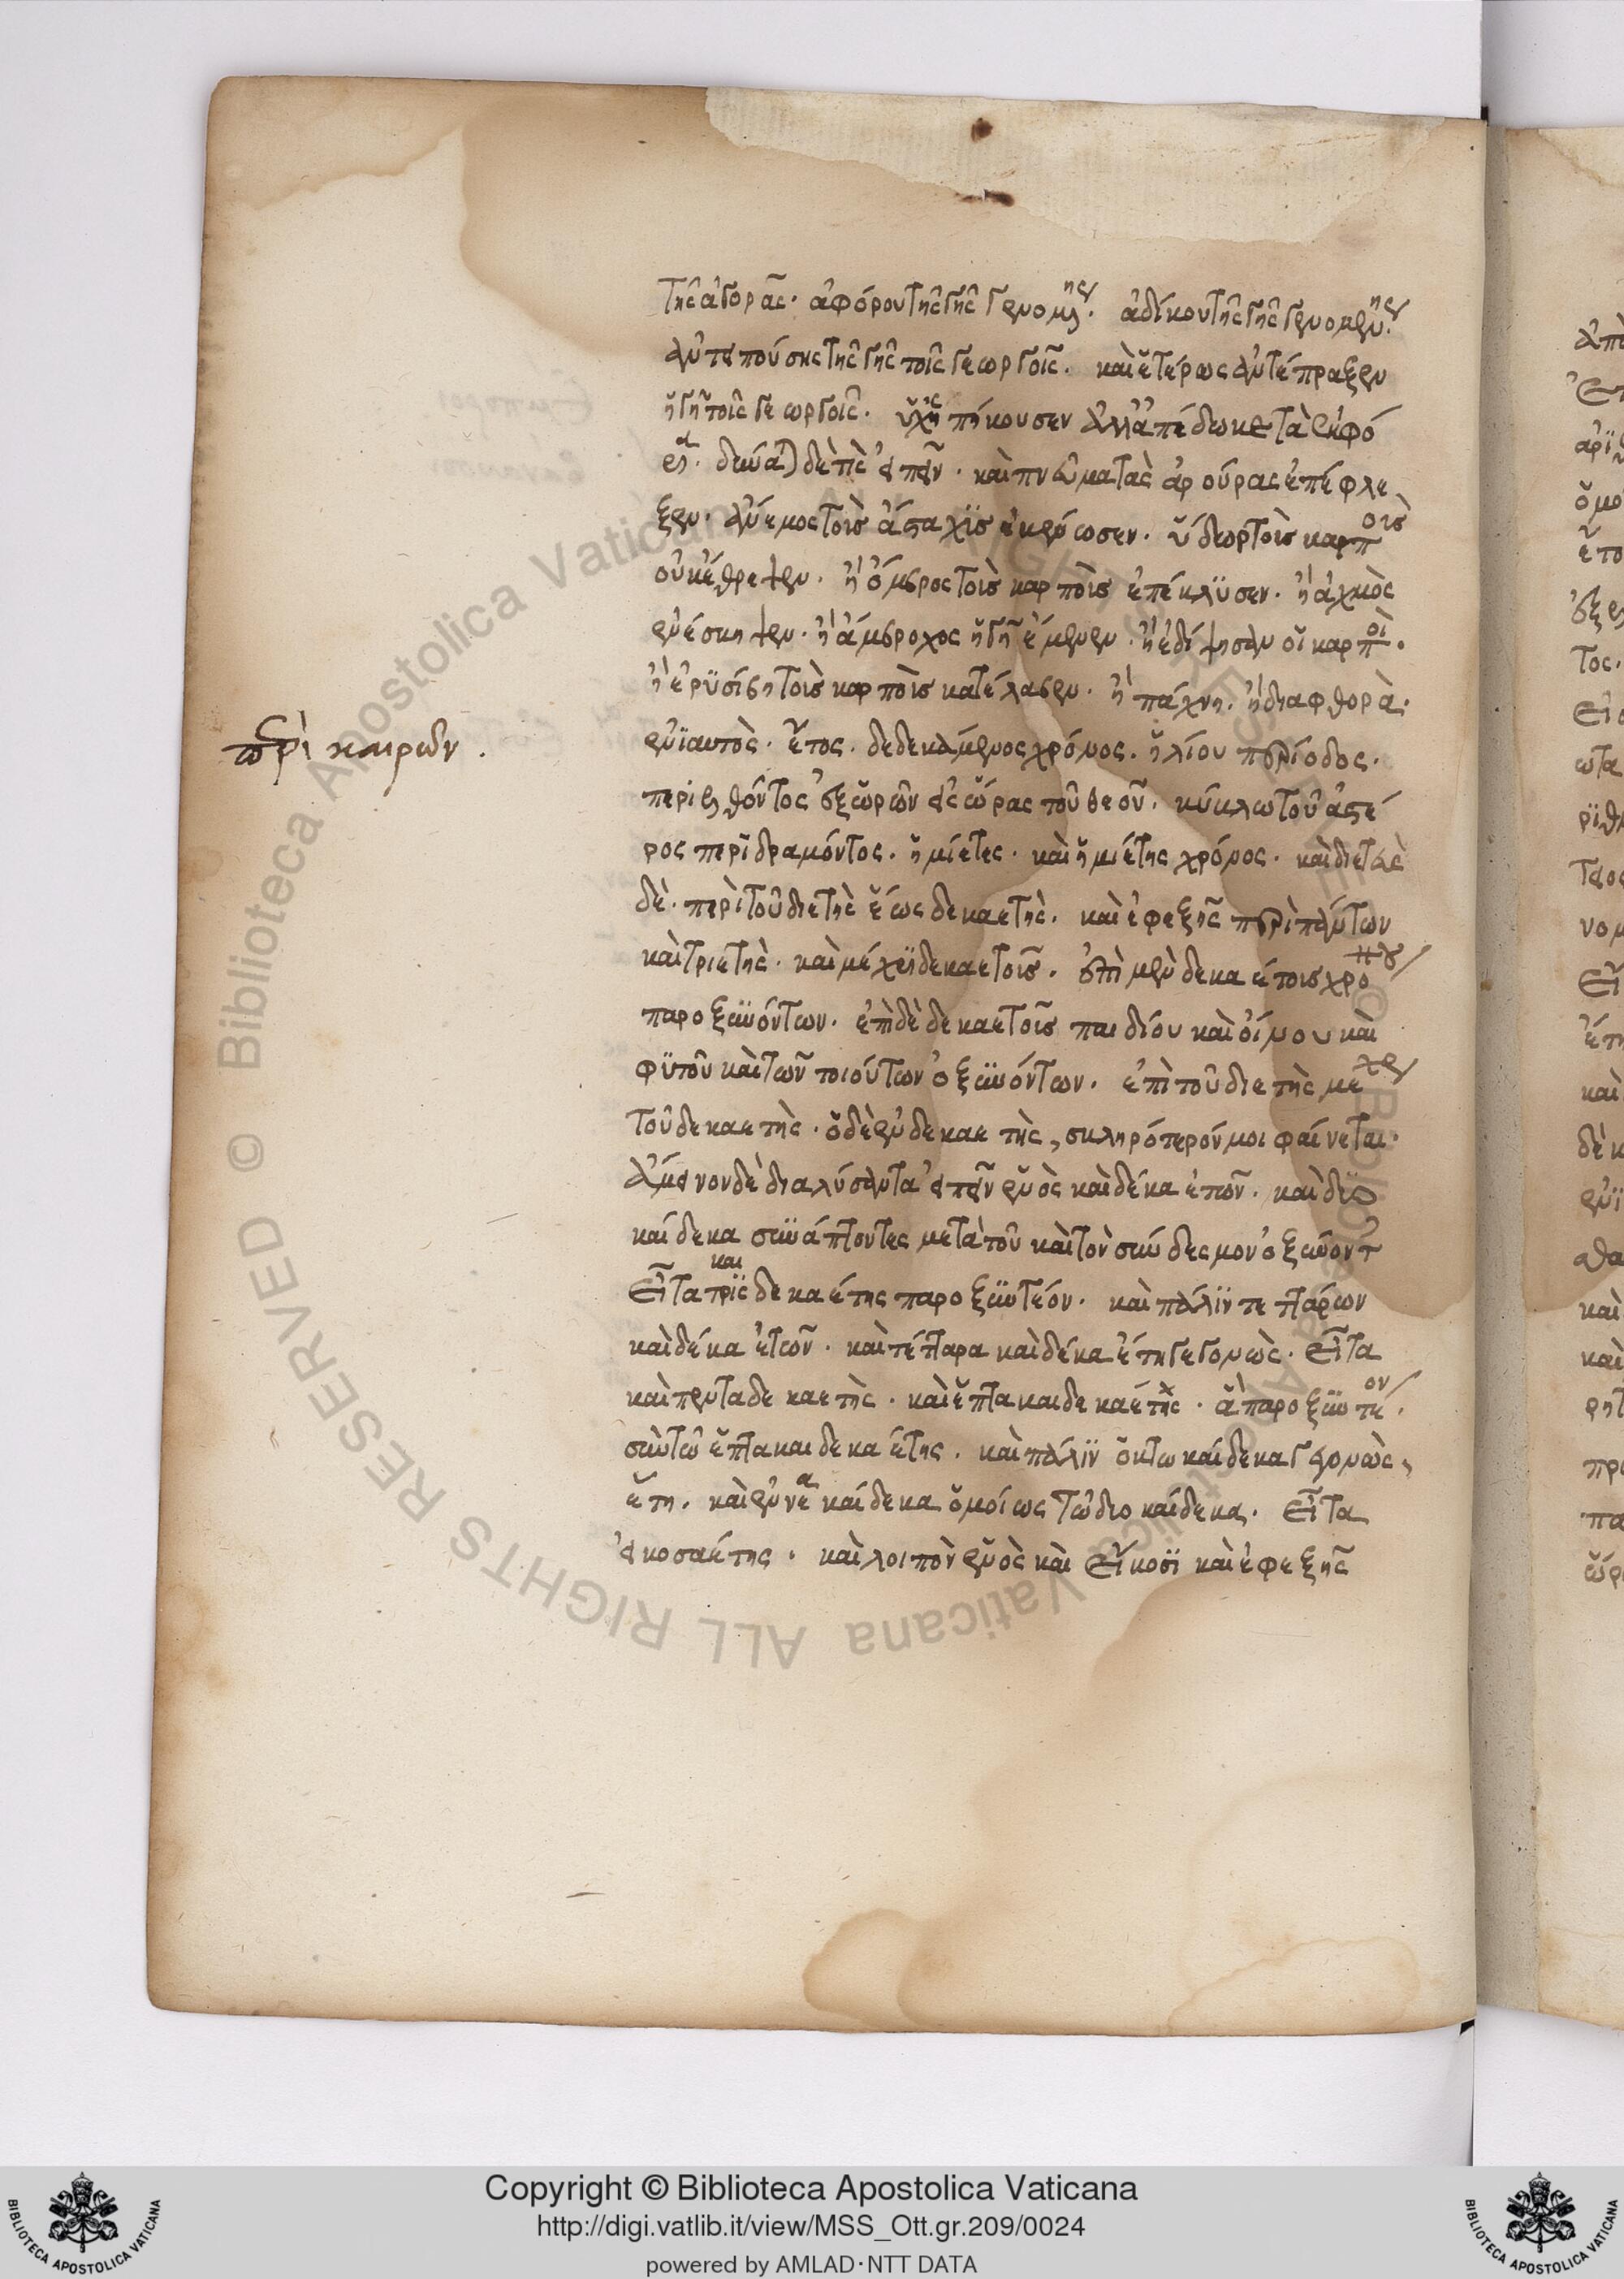 τῆς ἀγορᾶς. ἀφόρου τῆς γῆς γενομένης. ἀδίκου τῆς γῆς γενομένης.
ἀντειπούσης τῆς γῆς τοῖς γεωργοῖς. καὶ ἑτέρως ἀντέπραξεν
ἡ γῆ τοῖς γεωργοῖς. οὐχ ὑπήκουσεν ἀλλ' ἀπέδωκε τὰ
δὲ εἰπεῖν. καὶ πνεύματα τὰς ἀρούρας ἐπέφλε
ξεν. ἄνεμος τοὺς ἀστάχυς ἐκένωσεν. ὕδωρ τοὺς καρποὺς
οὐκ ἔθρεψεν. ἢ ὄμβρος τοὺς καρποὺς ἐπέκλυσεν. ἢ αὐχμὸς
ἐνέσκηψεν. ἢ ἄμβροχος ἡ γῆ ἔμενεν. ἢ ἐδίψησαν οἱ καρποί.
ἢ ἐρυσίβη τοὺς καρποὺς κατέλαβεν. ἢ πάχνη. ἢ διαφθορὰ.
περὶ καιρῶν.
ἐνιαυτὸς. ἔτος. δεδεκάμενος χρόνος. ἡλίου περίοδος.
περιελθόντος ἐξ ὡρῶν εἰς ὥρας τοῦ θεοῦ. κύκλω τοῦ ἀστέ
ρος περιδραμόντος. ἡμίετες. καὶ ἡμιέτης χρόνος. καὶ διετὲς
δὲ. περὶ τοῦ διετὴς ἕως δεκαετὴς. καὶ ἐφεξῆς περὶ πάντων
καὶ τριετὴς. καὶ μέχρι δεκαετοῦς. ἐπὶ μὲν δεκαέτους χρόνου
παροξυνόντων. ἐπὶ δὲ δεκαετοῦς παιδίου καὶ οἴνου καὶ
φυτοῦ καὶ τῶν τοιούτων ὀξυνόντων. ἐπὶ τοῦ διετὴς μέχρι
τοῦ δεκαετὴς. ὁ δὲ ἑνδεκαετὴς, σκληρότερόν μοι φαίνεται.
ἄμεινον δὲ διαλύσαντα εἰπεῖν ἑνὸς καὶ δέκα ἐτῶν. καὶ δυο
καίδεκα συνάπτοντες μετὰ τοῦ καὶ τὸν σύνδεσμον ὀξύνοντ
Εἶτα τρὶς καὶ δεκαέτης παροξυντέον. καὶ πάλιν τεττάρων
καὶ δέκα ἐτῶν. καὶ τέτταρα καὶ δέκα ἔτη γεγονὼς. Εἶτα
καὶ πενταδεκαετὴς. καὶ ἑπτακαιδεκαέτης. ἃ παροξυντέον.
σὺν τῶ ἑπτακαιδεκαέτης. καὶ πάλιν ὀκτωκαίδεκα γεγονὼς,
ἔτη. καὶ ἐννεακαίδεκα ὁμοίως τῶ δυοκαίδεκα. Εἶτα
εἰκοσαέτης. καὶ λοιπὸν ἑνὸς καὶ Εἴκοσι καὶ ἐφεξῆς
© Biblioteca Apostolica Vaticana ALL RIGHTS RESERVED
Copyright © Biblioteca Apostolica Vaticana
http://digi.vatlib.it/view/MSS_Ott.gr.209/0024
powered by AMLAD·NTT DATA
BIBLIOTECA APOSTOLICA VATICANA
BIBLIOTECA APOSTOLICA VATICANA